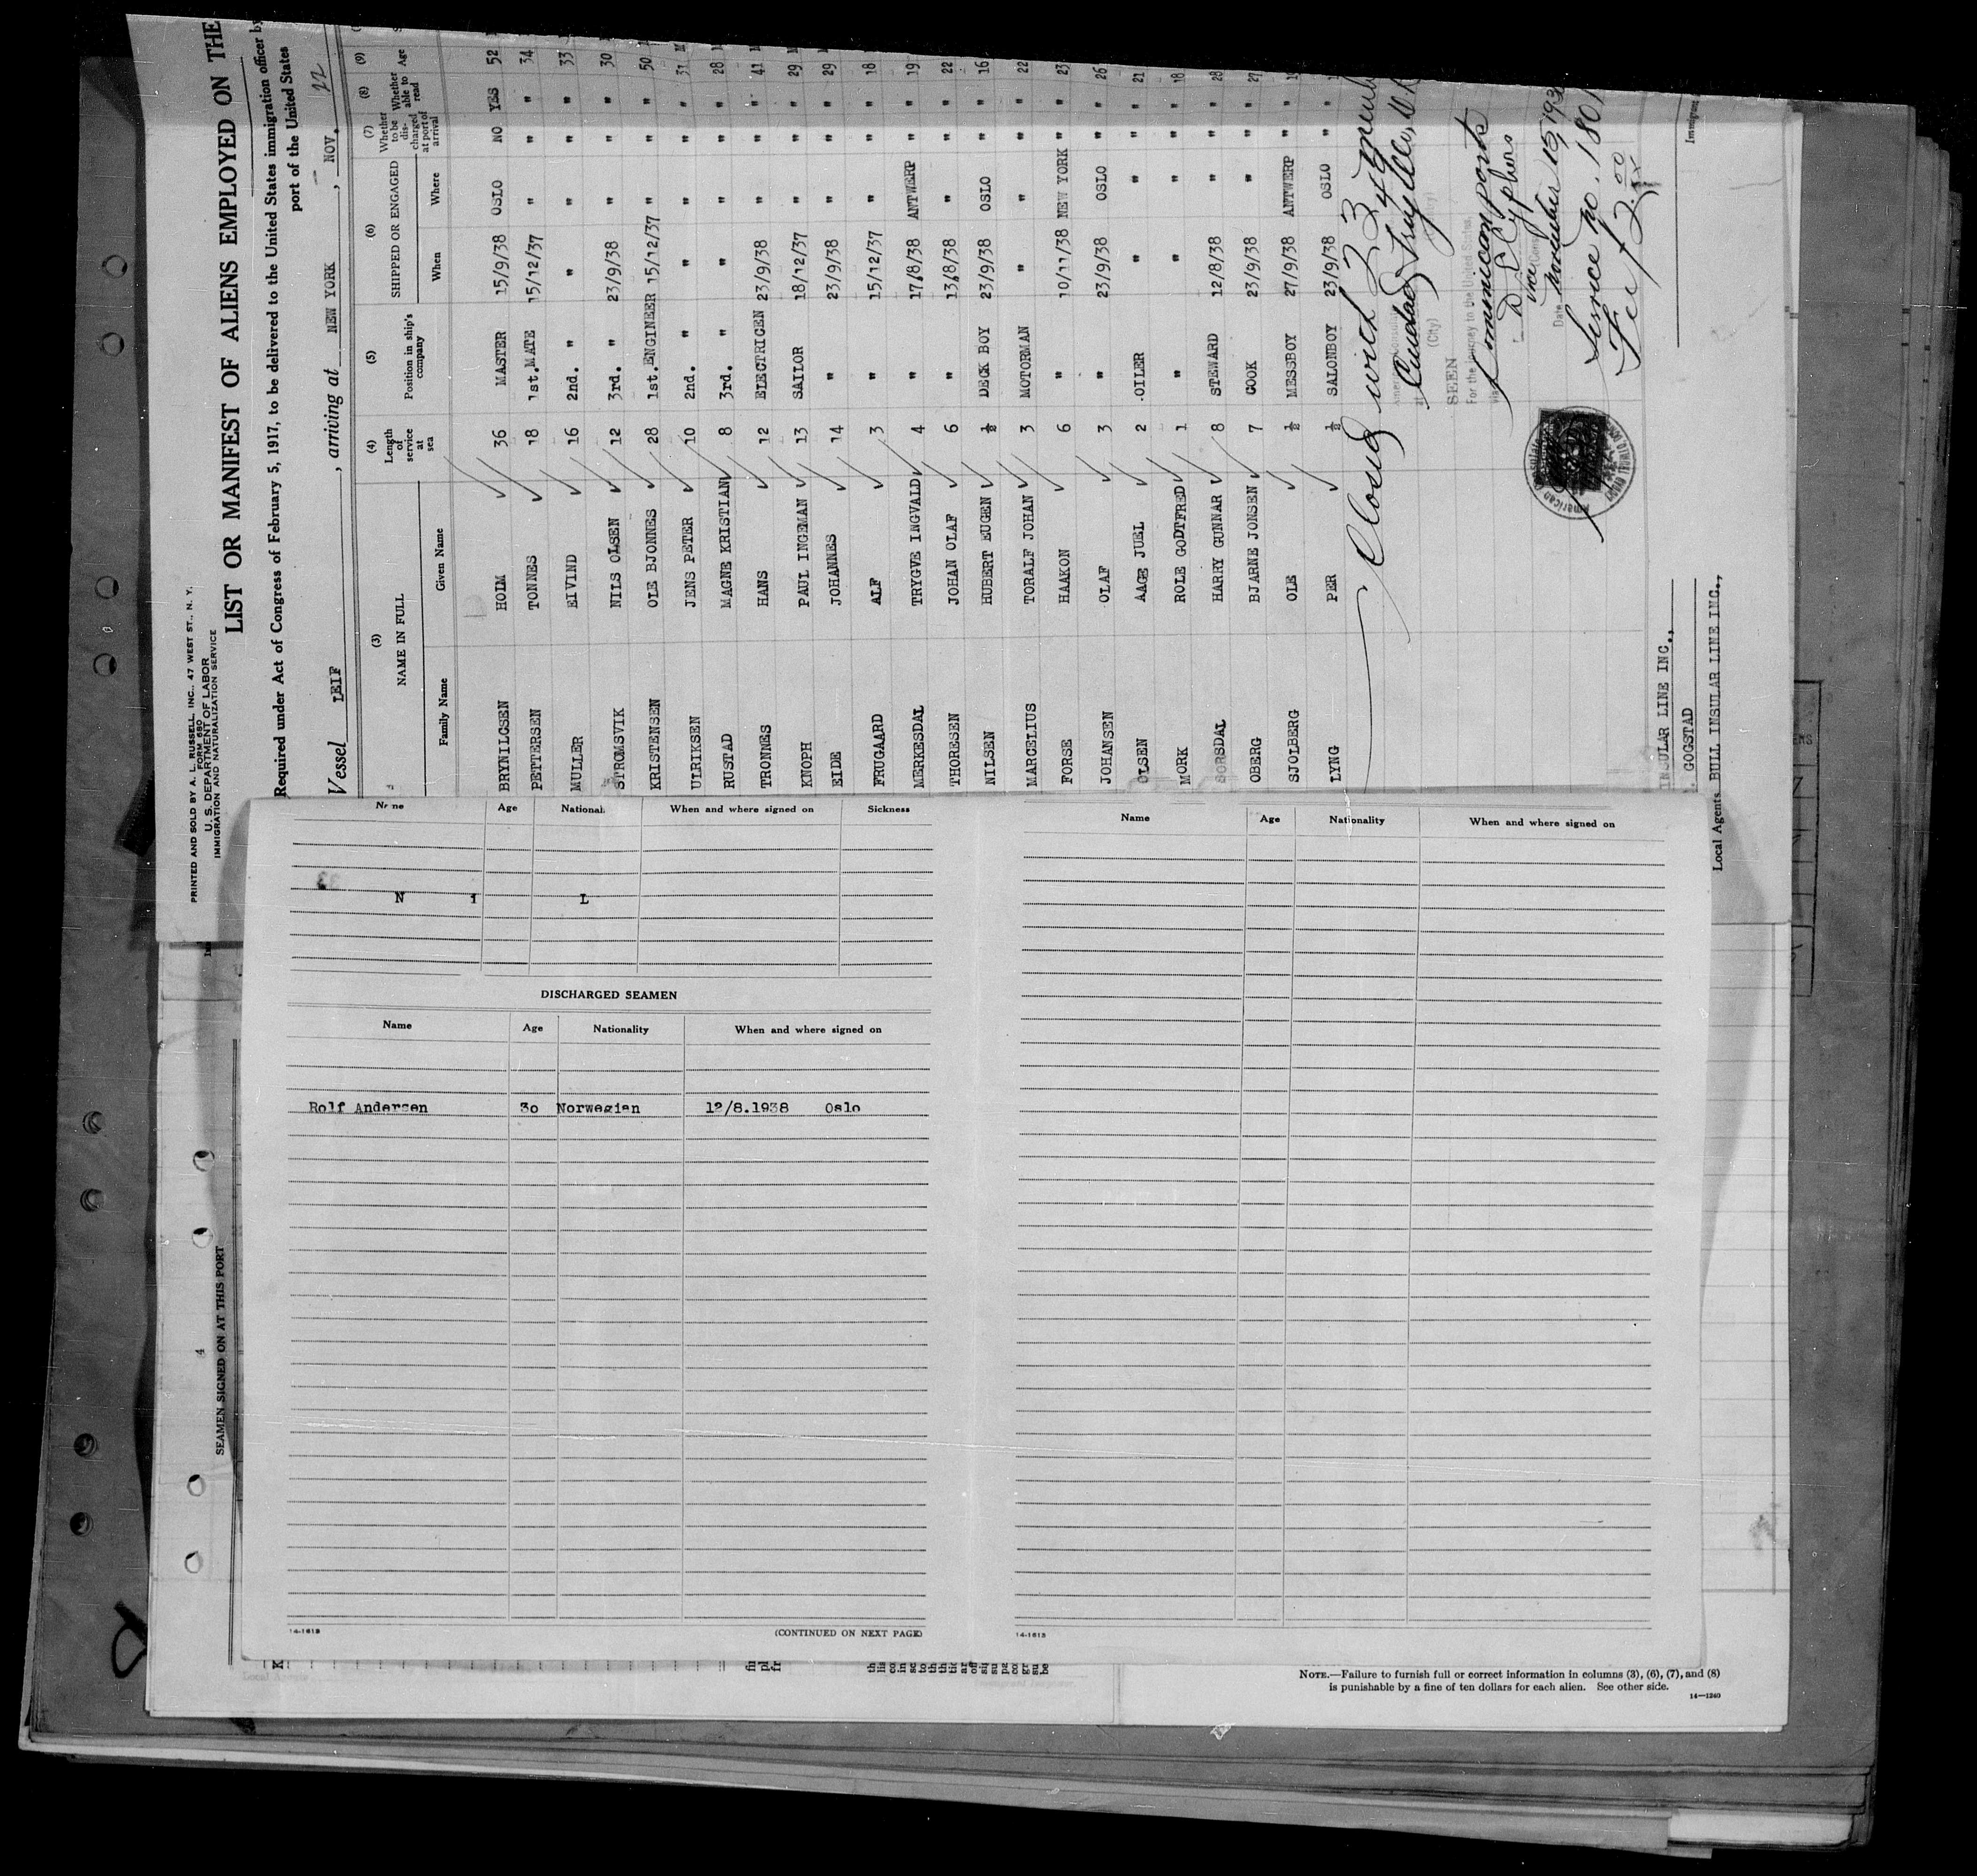 PRINTED AND SOLD BY A. L. RUSSELL, INC., 47 WEST ST., N. Y.
FORM 680
U. S. DEPARTMENT OF LABOR
IMMIGRATION AND NATURALIZATION SERVICE
LIST OR MANIFEST OF ALIENS EMPLOYED ON THE
Required under Act of Congress of February 5, 1917, to be delivered to the United States immigration officer by
port of the United States
Vessel LEIF, arriving at NEW YORK, NOV. 22
(3) (4) (5) (6) (7) (8) (9)
NAME IN FULL Length of service at sea Position in ship's company SHIPPED OR ENGAGED Whether to be discharged at port of arrival Whether able to read Age
Family Name Given Name When Where
BRYNILGSEN HOLM 36 MASTER 15/9/38 OSLO NO YES 52
PETTERSEN TONNES 18 1st.MATE 15/12/37 " " " 34
MULLER EIVIND 16 2nd. " " " " " 33
STROMSVIK NILS OLSEN 12 3rd. " 23/9/38 " " " 30
KRISTENSEN OLE BJONNES 28 1st.ENGINEER 15/12/37 " " " 50
ULRIKSEN JENS PETER 10 2nd. " " " " " 31
RUSTAD MAGNE KRISTIAN 8 3rd. " " " " " 28
TRONNES HANS 12 ELECTRICEN 23/9/38 " " " 41
KNOPH PAUL INGEMAN 13 SAILOR 18/12/37 " " " 29
EIDE JOHANNES 14 " 23/9/38 " " " 29
FRUGAARD ALF 3 " 15/12/37 " " " 18
MERKESDAL TRYGVE INGVALD 4 " 17/8/38 ANTWERP " " 19
THORESEN JOHAN OLAF 6 " 13/8/38 " " " 22
NILSEN HUBERT EUGEN ½ DECK BOY 23/9/38 OSLO " " 16
MARCELIUS TORALF JOHAN 3 MOTORMAN " " " " 22
FORSE HAAKON 6 " 10/11/38 NEW YORK " " 23
JOHANSEN OLAF 3 " 23/9/38 OSLO " " 26
OLSEN AAGE JUEL 2 OILER " " " " 21
MORK ROLE GODTFRED 1 " " " " " 18
SORSDAL HARRY GUNNAR 8 STEWARD 12/8/38 " " " 28
OBERG BJARNE JONSEN 7 COOK 23/9/38 " " " 27
SJOLBERG OLE ½ MESSBOY 27/9/38 ANTWERP " "
LYNG PER ½ SALONBOY 23/9/38 OSLO " "
Closed with 23
Ciudad Trujillo,
(City)
SEEN
For the journey to the United States
via Dominican ports
Vice
Date November 15, 193
Service no. 1801
Fee $2.00
American Consulate
INSULAR LINE INC.,
GOGSTAD
Local Agents BULL INSULAR LINE INC.,
Name Age National. When and where signed on Sickness
N i L
DISCHARGED SEAMEN
Name Age Nationality When and where signed on
Rolf Andersen 30 Norwegian 12/8.1938 Oslo
14-1613
(CONTINUED ON NEXT PAGE)
Name Age Nationality When and where signed on
14-1613
4
SEAMEN SIGNED ON AT THIS PORT
NOTE.—Failure to furnish full or correct information in columns (3), (6), (7), and (8)
is punishable by a fine of ten dollars for each alien. See other side.
14—1240